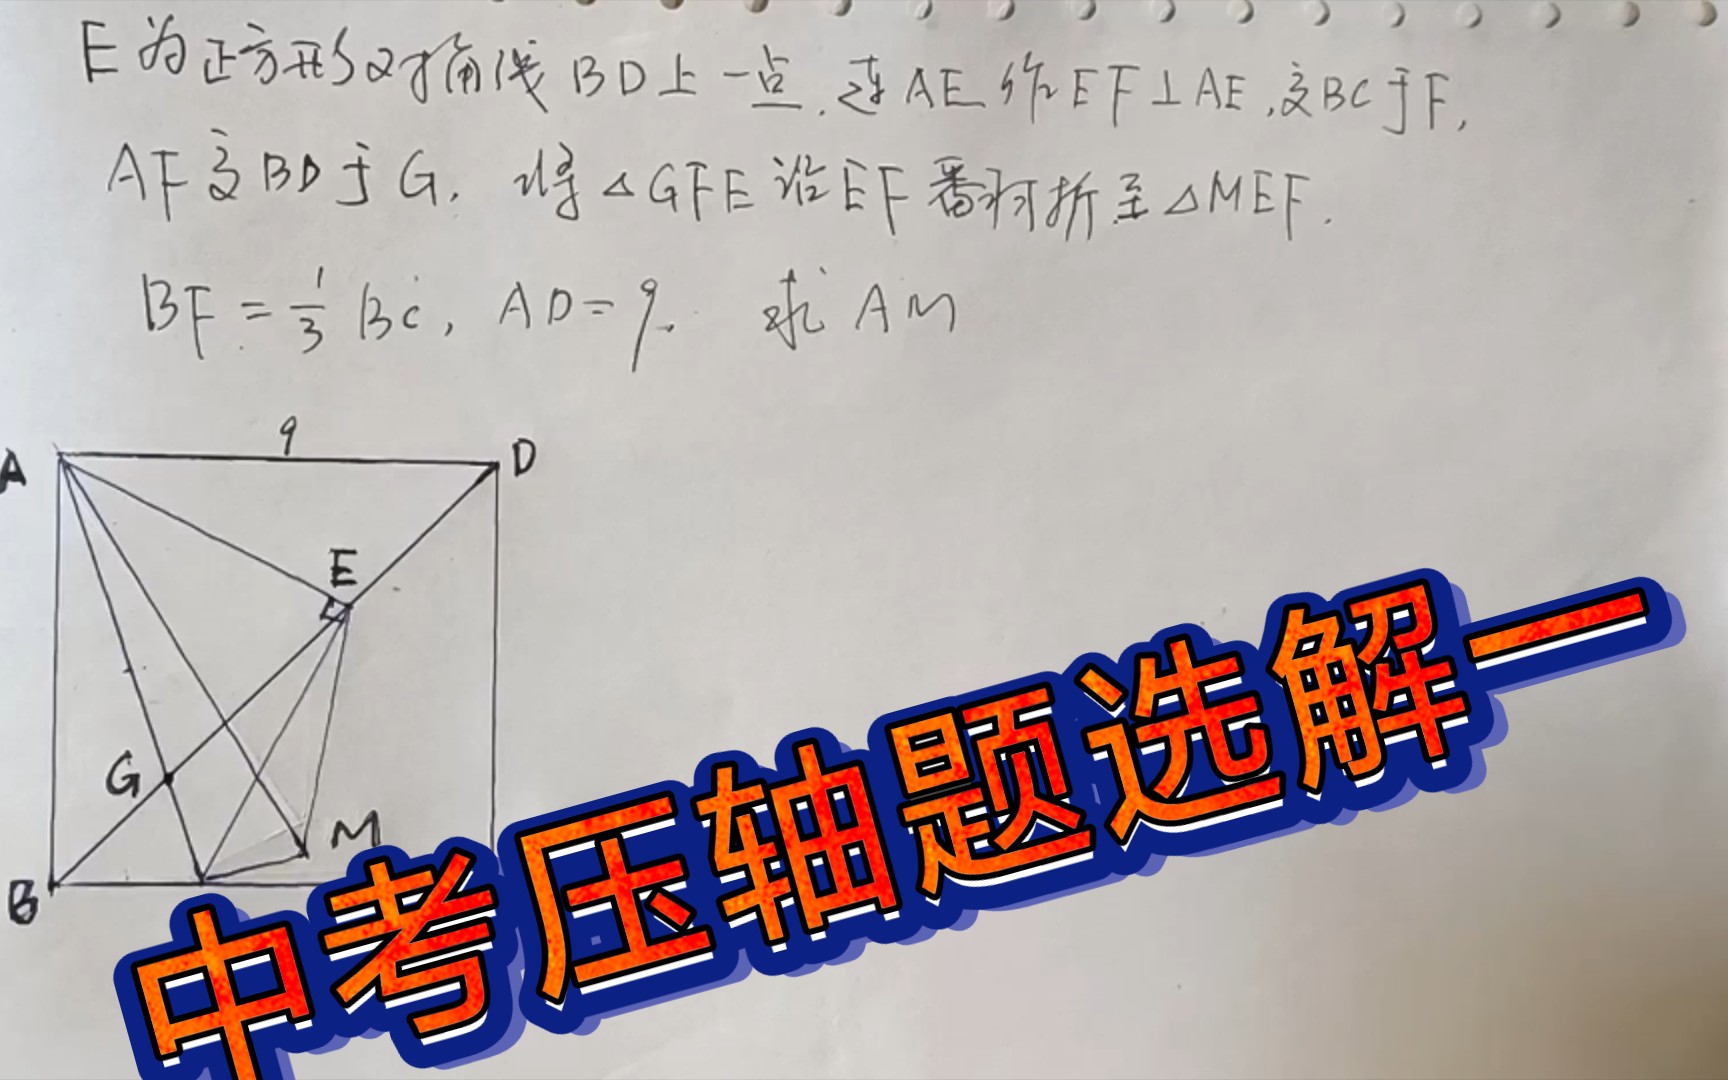 E为正方形对角线BD上一点.连AE作EF⊥AE,交BC于F,
AF交BD于G. 将△GFE沿EF翻折至△MEF.
BF=1/3 BC, AD=9. 求AM
9
A
D
E
G
M
B
中考压轴题选解一